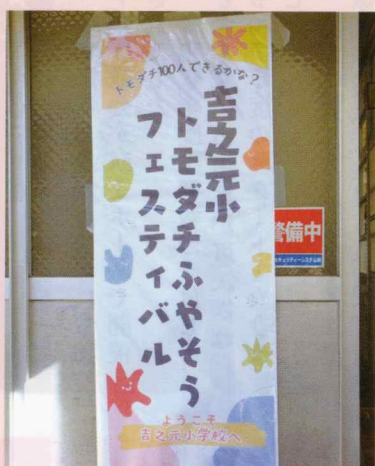 トモダチ100人できるかな？
吉之元小
トモダチふやそう
フェスティバル
ようこそ
吉之元小学校へ
警備中